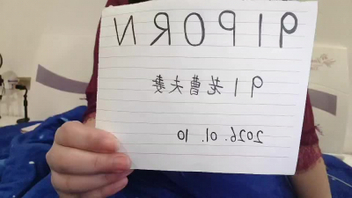 91PORN
91老曹夫妻
2026.01.10